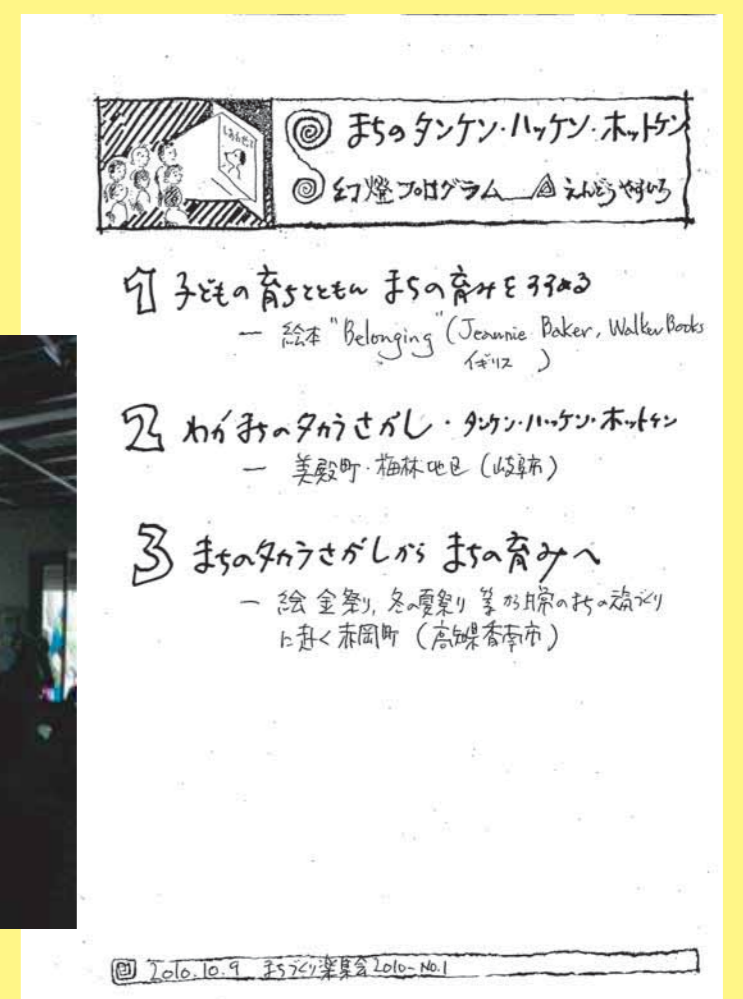 しあんせて
まちのタンケン・ハッケン・ホットケン
幻燈プログラム えんどうやすひろ
1 子どもの育ちとともに まちの育みをすすめる
― 絵本"Belonging"(Jeannie Baker, Walker Books
イギリス)
2 わがまちのタカラさがし・タンケン・ハッケン・ホットケン
― 美殿町・梅林地区(岐阜市)
3 まちのタカラさがしから まちの育みへ
― 絵金祭り, 冬の夏祭り 等から日常のまちの づくり
に赴く赤岡町(高知県香南市)
2010.10.9 まちづくり楽集会2010-No.1